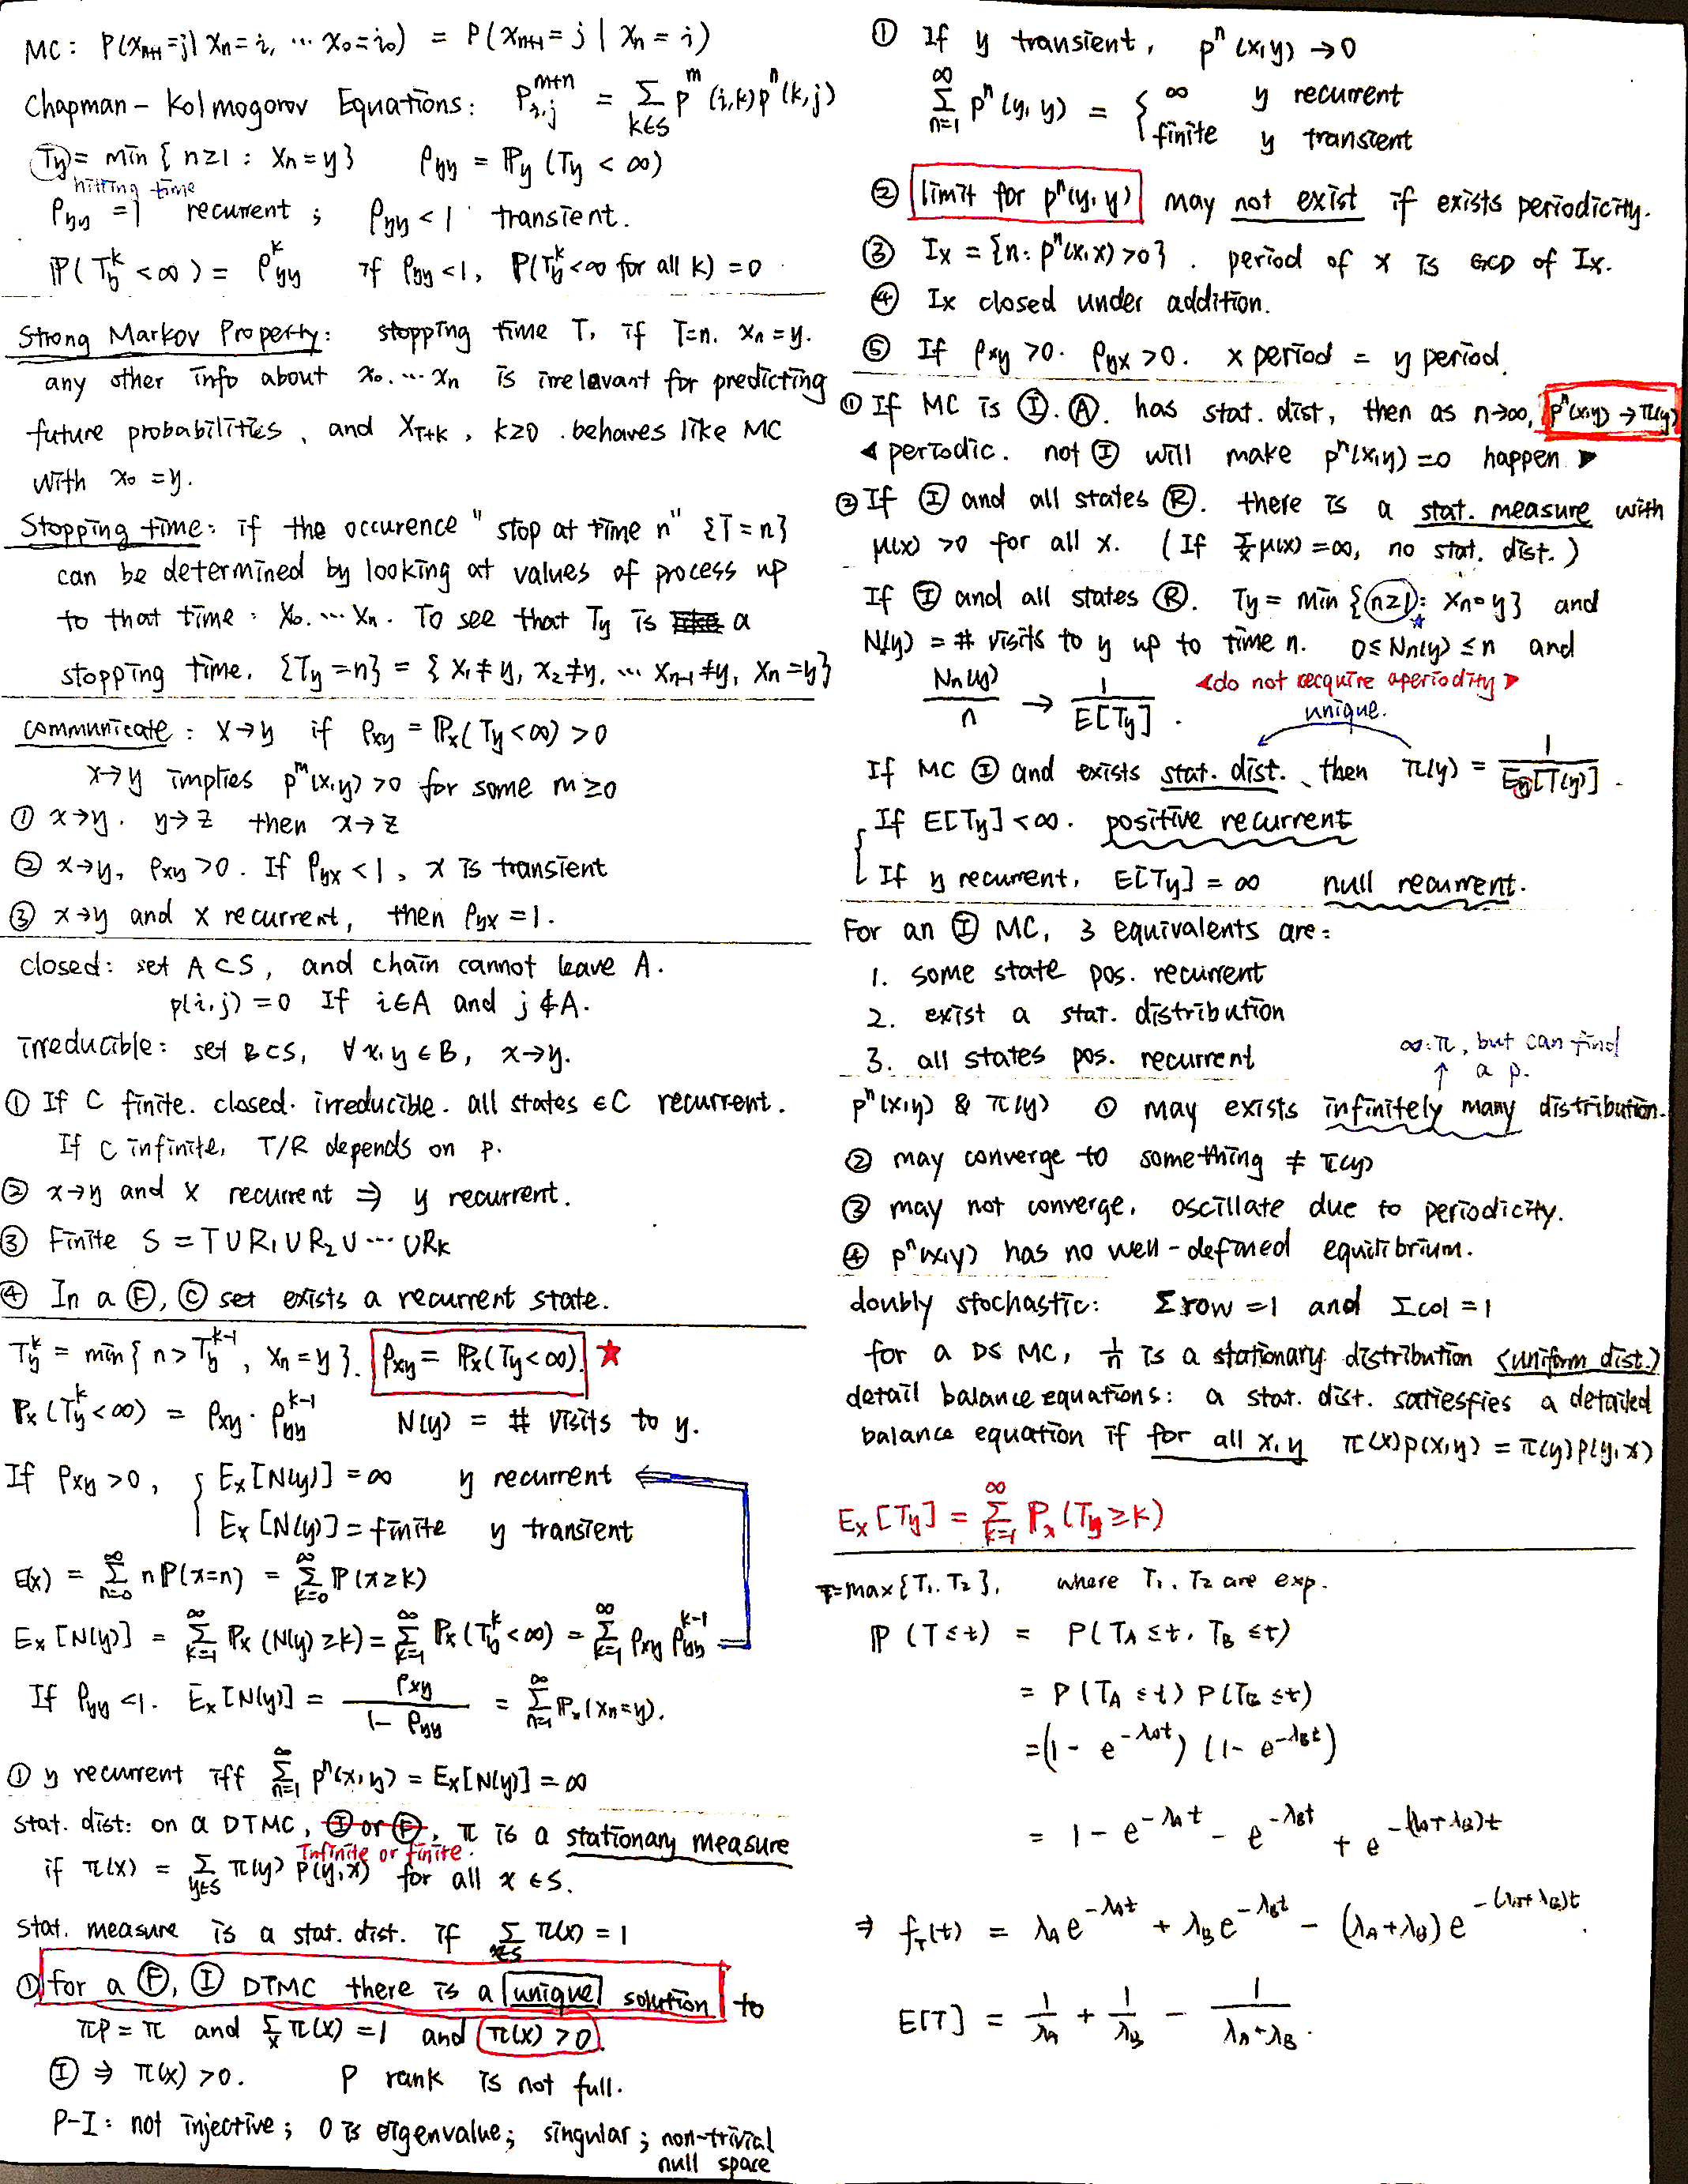 MC: P(Xn+1=j| Xn=i, ... X0=i0) = P(Xn+1=j | Xn=i)
Chapman-Kolmogorov Equations: P^{m+n}_{i,j} = Σ_{k∈S} p^m(i,k) p^n(k,j)
Ty = min{ n≥1 : Xn=y} ρyy = ℙy (Ty < ∞)
hitting time
ρyy = 1 recurrent ; ρyy < 1 transient.
ℙ(Ty^k < ∞) = ρyy^k if ρyy<1, ℙ(Ty^k<∞ for all k) = 0
Strong Markov Property: stopping time T, if T=n. Xn=y.
any other info about X0.…Xn is irrelavant for predicting
future probabilities, and XT+k, k≥0 .behaves like MC
with X0=y.
Stopping time: if the occurence "stop at time n" {T=n}
can be determined by looking at values of process up
to that time: X0.…Xn. To see that Ty is a
stopping time. {Ty=n} = { X1≠y, X2≠y, … Xn-1≠y, Xn=y}
communicate: X→y if ρxy = ℙx(Ty<∞) > 0
X→y implies p^m(x,y) >0 for some m≥0
① x→y. y→z then x→z
② x→y, ρxy>0. If ρyx <1, x is transient
③ x→y and x recurrent, then ρyx = 1.
closed: set A⊂S, and chain cannot leave A.
p(i,j) = 0 If i∈A and j∉A.
irreducible: set B⊂S, ∀x,y∈B, x→y.
① If C finite. closed. irreducible. all states ∈C recurrent.
If C infinite, T/R depends on p.
② x→y and x recurrent ⇒ y recurrent.
③ Finite S = T∪R1∪R2∪…∪Rk
④ In a Ⓕ, Ⓒ set exists a recurrent state.
Ty^k = min{ n> Ty^{k-1}, Xn=y}. ρxy = ℙx(Ty<∞). ★
ℙx(Ty^k<∞) = ρxy · ρyy^{k-1} N(y) = # visits to y.
If ρxy >0, { Ex[N(y)] = ∞ y recurrent
Ex[N(y)] = finite y transient
E(x) = Σ_{n=0}^∞ nP(x=n) = Σ_{k=0}^∞ ℙ(x≥k)
Ex[N(y)] = Σ_{k=1}^∞ ℙx(N(y)≥k) = Σ_{k=1}^∞ ℙx(Ty^k<∞) = Σ_{k=1}^∞ ρxy ρyy^{k-1}
If ρyy<1. Ex[N(y)] = ρxy / (1-ρyy) = Σ_{n=1}^∞ ℙx(Xn=y).
① y recurrent iff Σ_{n=1}^∞ p^n(x,y) = Ex[N(y)] = ∞
stat. dist: on a DTMC, Ⓘ or Ⓕ, π is a stationary measure
infinite or finite.
if π(x) = Σ_{y∈S} π(y) p(y,x) for all x∈S.
stat. measure is a stat. dist. if Σ_{x∈S} π(x) = 1
① for a Ⓕ, Ⓘ DTMC there is a unique solution to
πP=π and Σx π(x) = 1 and π(x) > 0.
Ⓘ ⇒ π(x) >0. P rank is not full.
P-I: not injective; 0 is eigenvalue; singular; non-trivial
null space
① If y transient, p^n(x,y) → 0
Σ_{n=1}^∞ p^n(y,y) = { ∞ y recurrent
finite y transient
② limit for p^n(y,y) may not exist if exists periodicity.
③ Ix = {n: p^n(x,x) >0}. period of x is GCD of Ix.
④ Ix closed under addition.
⑤ If ρxy >0. ρyx >0. x period = y period.
① If MC is Ⓘ.Ⓐ. has stat. dist, then as n→∞, p^n(x,y)→π(y)
◄ periodic. not Ⓘ will make p^n(x,y)=0 happen ►
② If Ⓘ and all states Ⓡ. there is a stat. measure with
μ(x) >0 for all x. (If Σx μ(x) =∞, no stat. dist.)
If Ⓘ and all states Ⓡ. Ty = min {n≥1: Xn=y} and
N(y) = # visits to y up to time n. 0≤Nn(y)≤n and
Nn(y)/n → 1/E[Ty]. ◄do not recquire aperiodity►
unique.
If MC Ⓘ and exists stat. dist., then π(y) = 1/Ey[T(y)].
{ If E[Ty]<∞. positive recurrent
If y recurrent, E[Ty] = ∞ null recurrent.
For an Ⓘ MC, 3 equivalents are:
1. some state pos. recurrent
2. exist a stat. distribution
3. all states pos. recurrent
∞:π, but can find
↑ a p.
p^n(x,y) & π(y) ① may exists infinitely many distribution.
② may converge to something ≠ π(y)
③ may not converge, oscillate due to periodicity.
④ p^n(x,y) has no well-defined equilibrium.
doubly stochastic: Σrow =1 and Σcol =1
for a DS MC, 1/n is a stationary distribution (uniform dist.)
detail balance equations: a stat. dist. satiesfies a detailed
balance equation if for all x,y π(x)p(x,y) = π(y)p(y,x)
Ex[Ty] = Σ_{k=1}^∞ ℙx(Ty≥k)
T=max{T1.T2}, where T1.T2 are exp.
ℙ(T≤t) = P(TA≤t, TB≤t)
= P(TA≤t) P(TB≤t)
=(1-e^{-λAt})(1-e^{-λBt})
= 1-e^{-λAt} - e^{-λBt} + e^{-(λA+λB)t}
⇒ fT(t) = λAe^{-λAt} + λBe^{-λBt} - (λA+λB)e^{-(λA+λB)t}
E[T] = 1/λA + 1/λB - 1/(λA+λB).